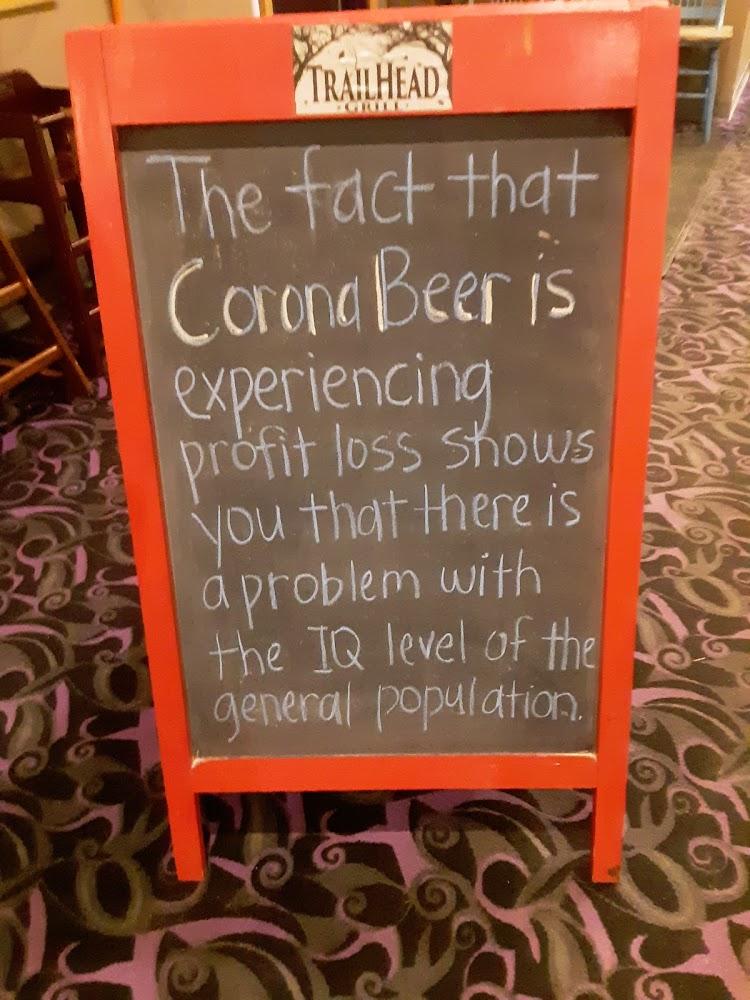 TRAILHEAD
GRILL
The fact that
Corona Beer is
experiencing
profit loss shows
you that there is
a problem with
the IQ level of the
general population.